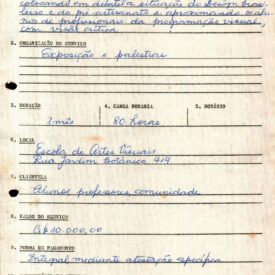 colocando em debate a situação do design brasi
leiro e do pré artesanato e aproximando
de profissionais da programação visual,
com visão crítica
2. ORGANIZAÇÃO DO SERVIÇO
Exposição e palestras
3. DURAÇÃO 4. CARGA HORARIA 5. HORÁRIO
1 mês 80 horas
6. LOCAL
Escola de Artes Visuais
Rua Jardim Botânico 414
7. CLIENTELA
Alunos professores comunidade
8. VALOR DO SERVIÇO
Cr$ 10 000,00
9. FORMA DE PAGAMENTO
Integral mediante atestação específica